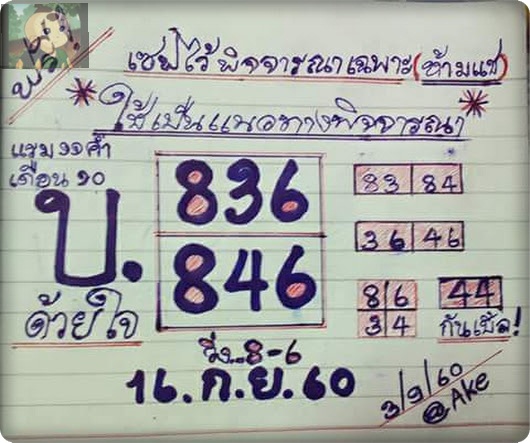 เซฟไว้พิจจารณาเฉพาะ(ห้ามแชร์)
*ใช้เป็นแนวทางพิจจารณา*
แรม ๑๑ ค่ำ
เดือน ๑๐
บ.
ด้วยใจ
836
846
83 84
36 46
8 6
3 4
44
กันเบิ้ล!
วิ่ง..8-6
16.ก.ย.60
3/9/60
@AKe